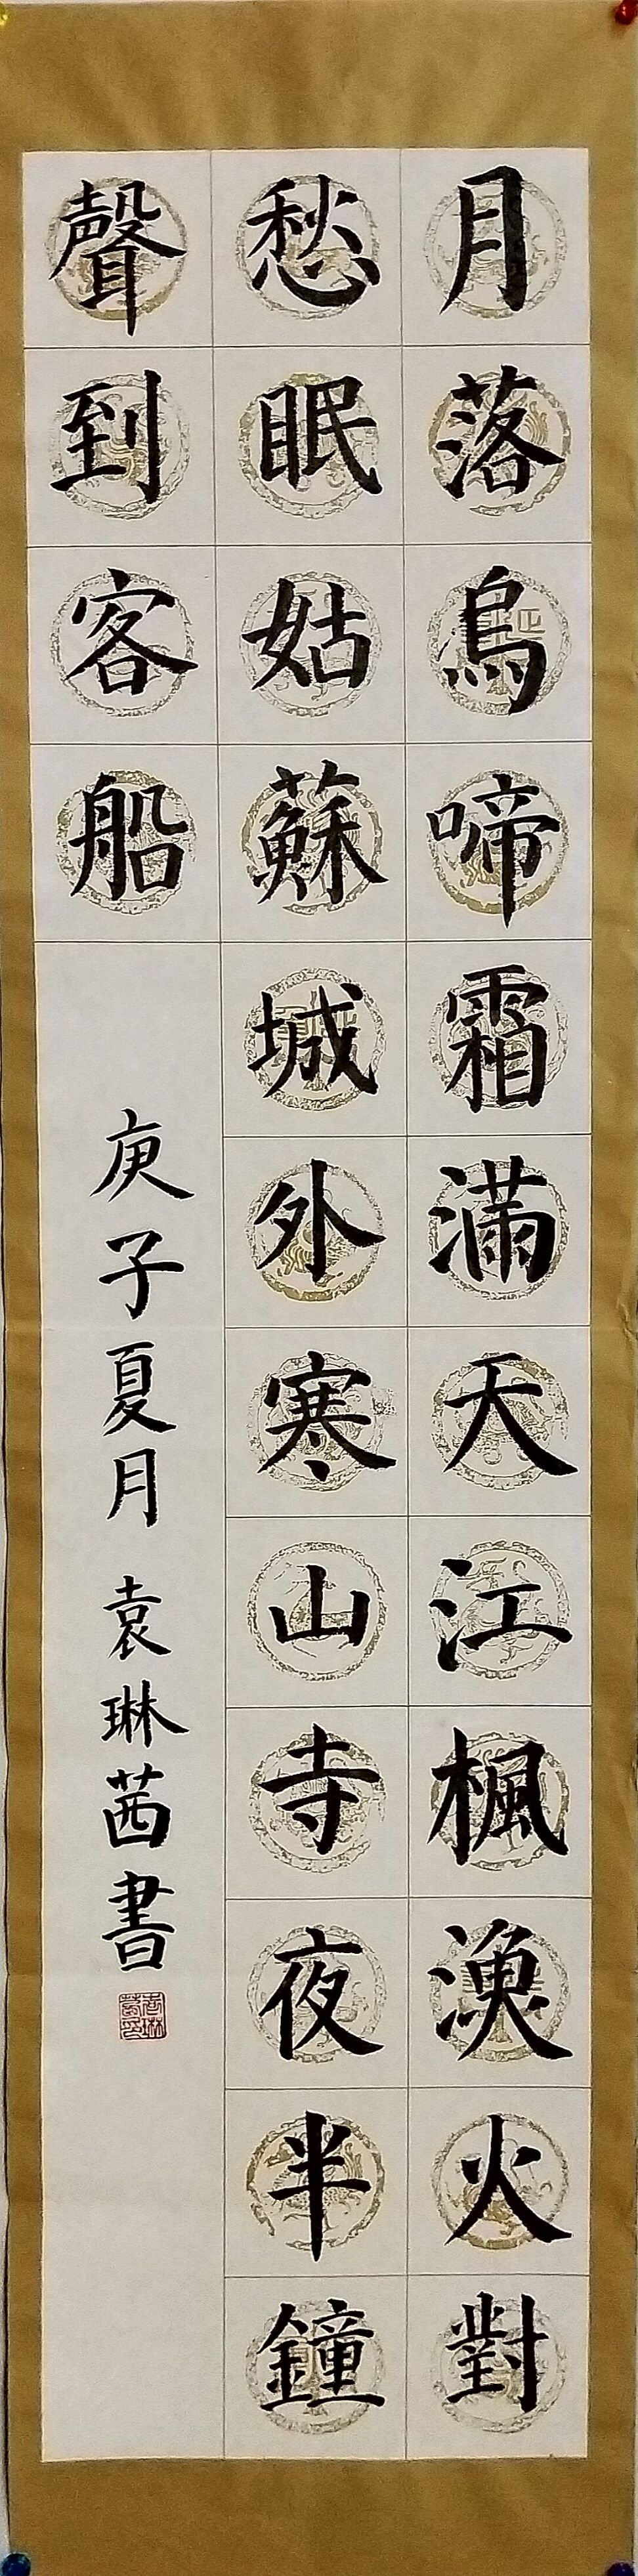 月落烏啼霜滿天江楓漁火對
愁眠姑蘇城外寒山寺夜半鐘
聲到客船
庚子夏月 袁琳茜書